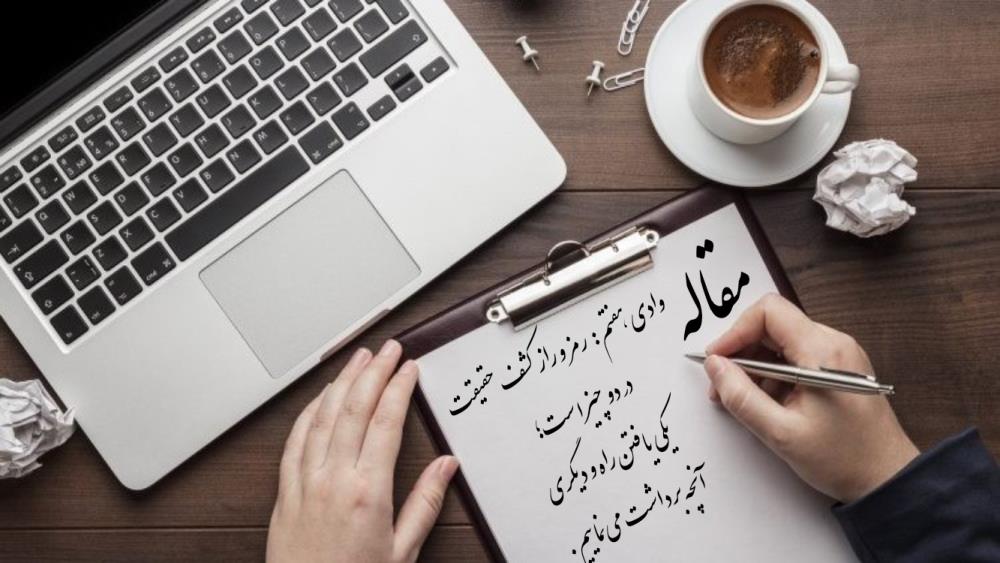 مقاله
وادی هفتم: رمز و راز کشف حقیقت
در دو چیز است؛
یکی یافتن راه و دیگری
آنچه برداشت می نماییم.